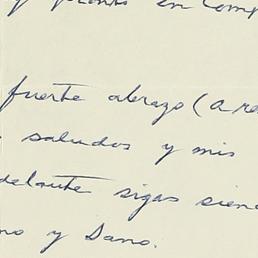 y pronto en comp
fuerte abrazo (a re
saludos y mis
delante sigas siend
no y Sano.